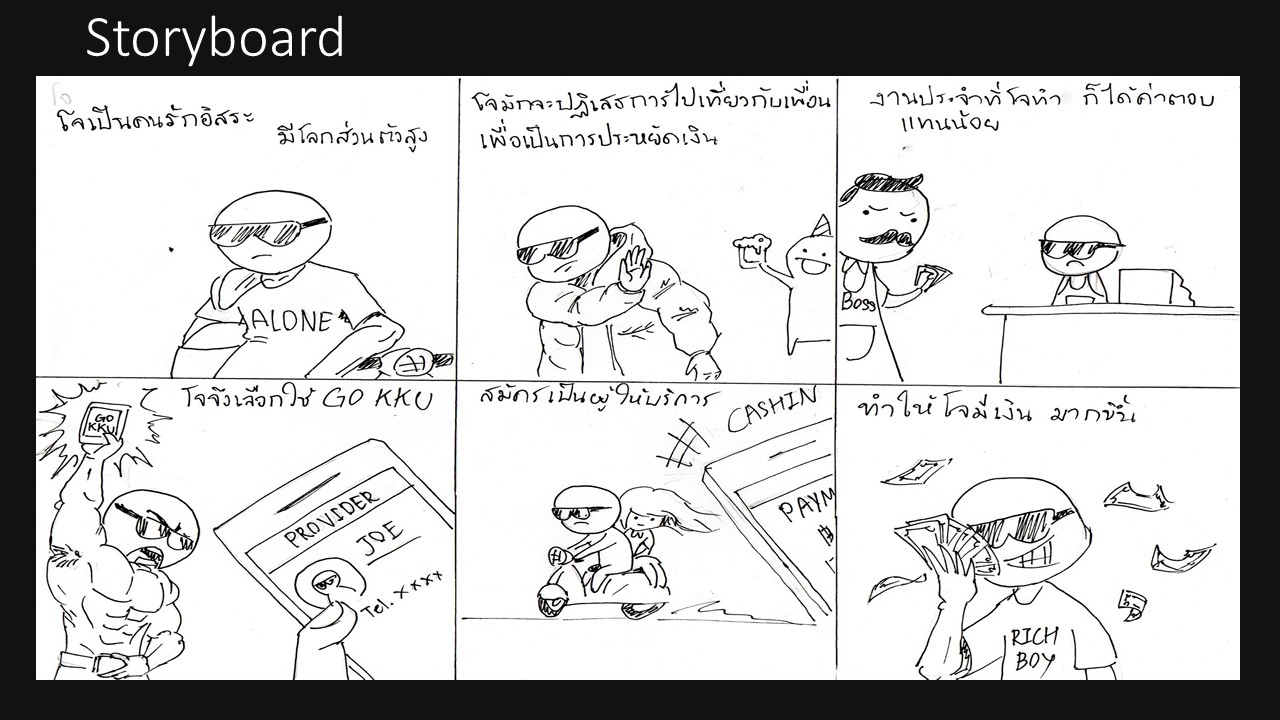 Storyboard
โจเป็นคนรักอิสระ
มีโลกส่วนตัวสูง
ALONE
โจมักจะปฏิเสธการไปเที่ยวกับเพื่อน
เพื่อเป็นการประหยัดเงิน
งานประจำที่โจทำ ก็ได้ค่าตอบ
แทนน้อย
BOSS
โจจึงเลือกใช้ GO KKU
GO
KKU
PROVIDER
JOE
Tel. xxxx
สมัครเป็นผู้ให้บริการ
CASHIN
PAYM
ทำให้โจมีเงิน มากขึ้น
RICH
BOY